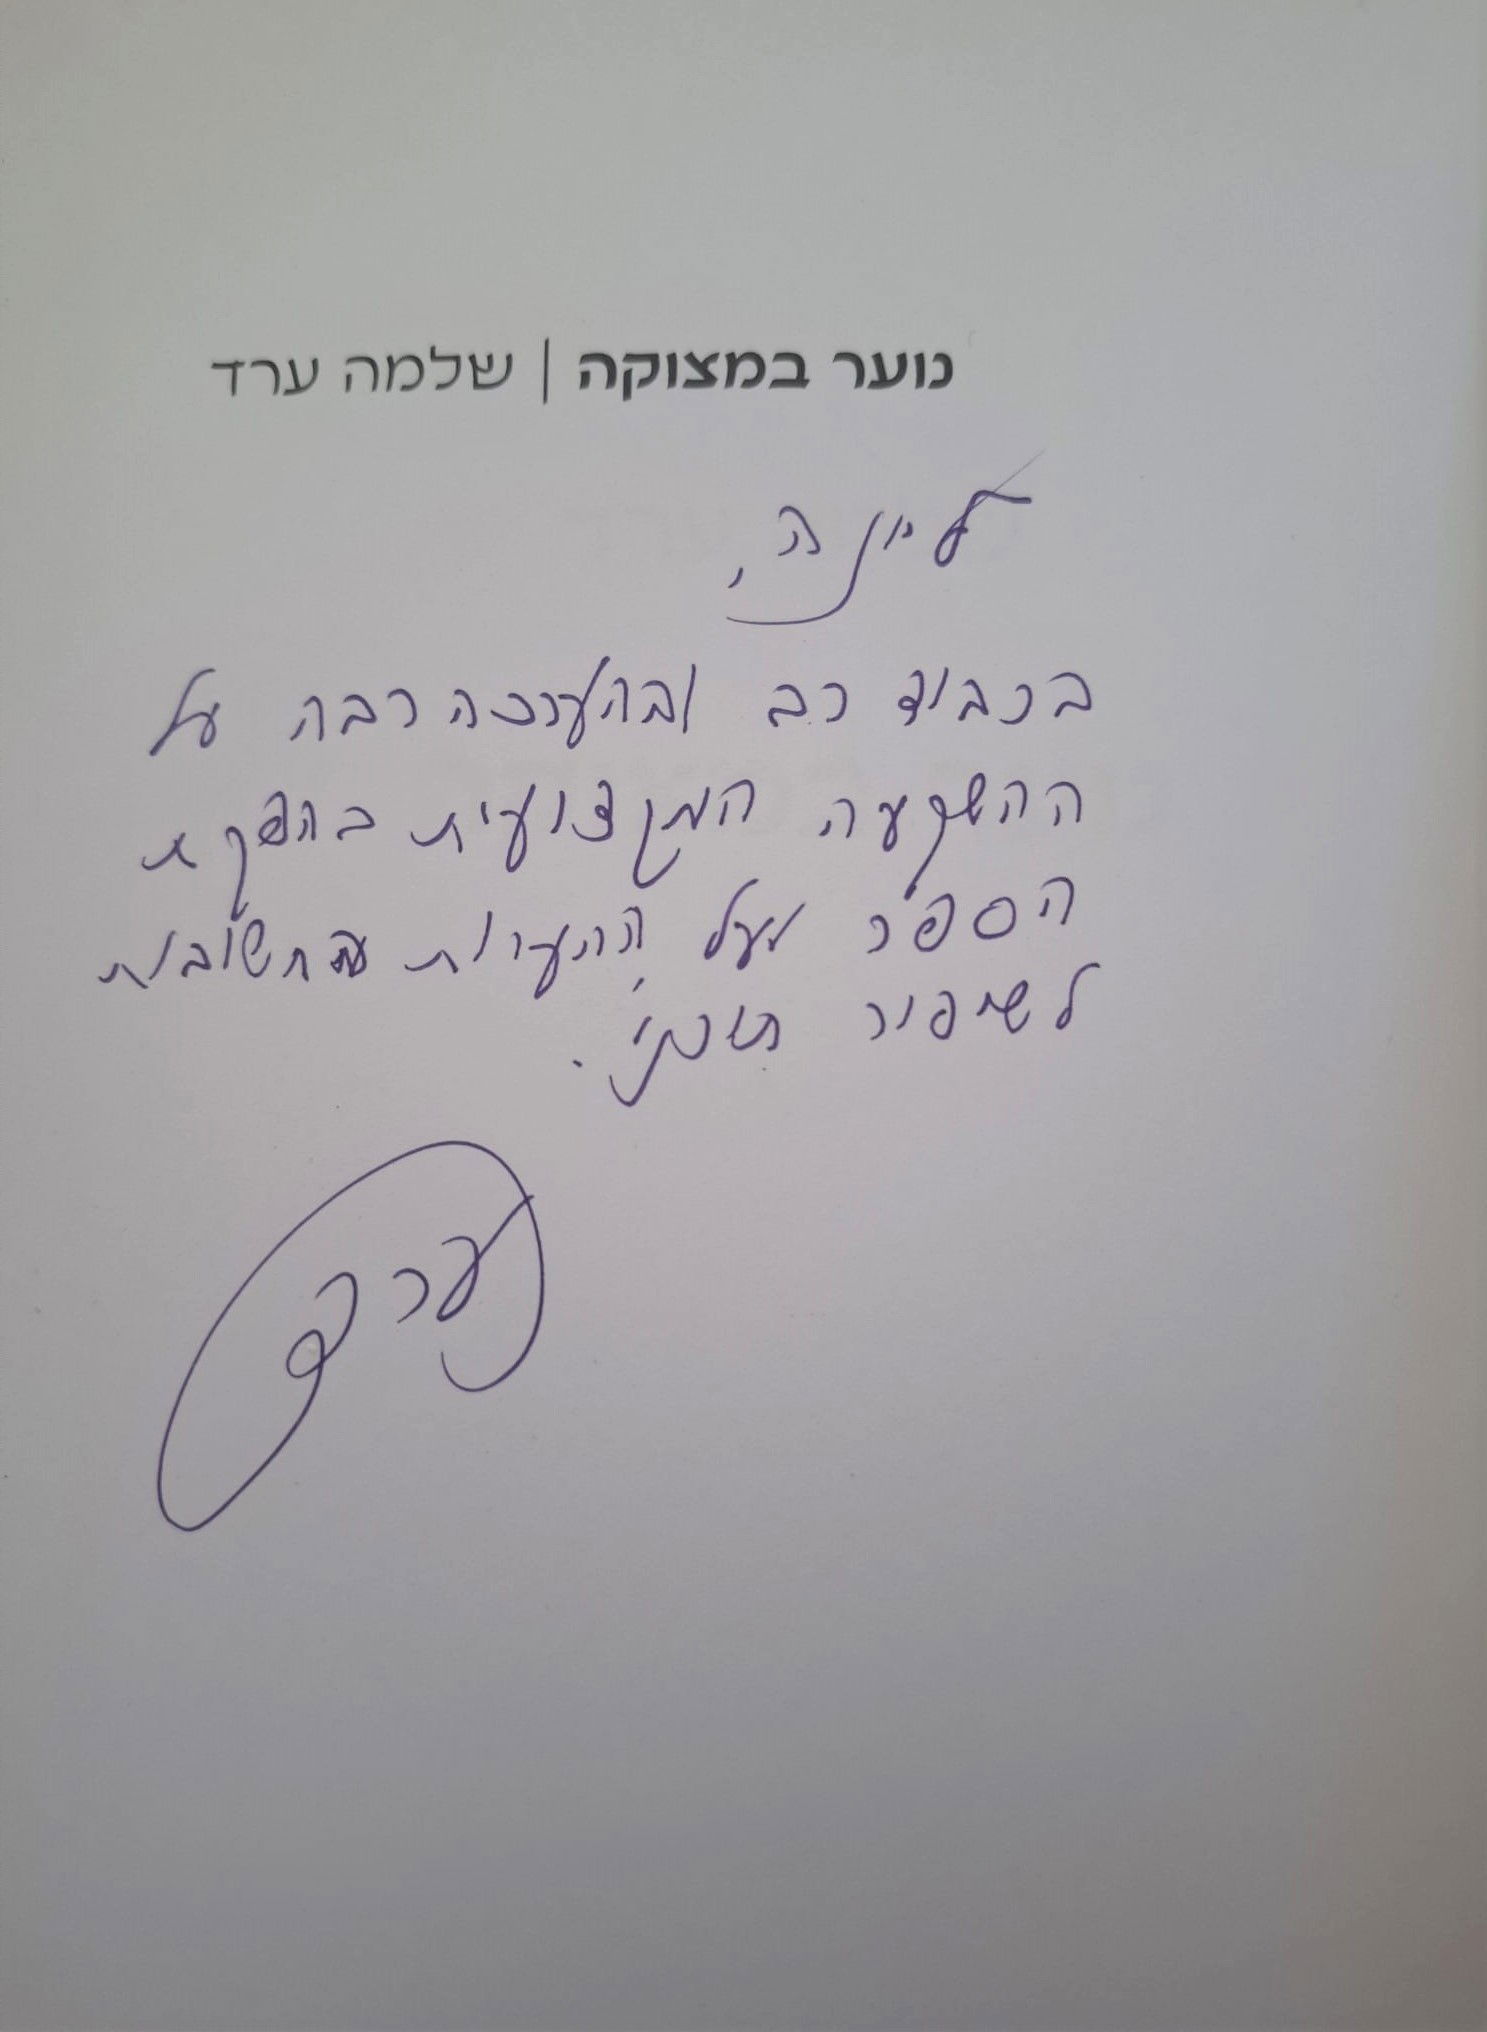 נוער במצוקה | שלמה ערד
ליונה,
בכבוד רב ובהערכה רבה על
ההשקעה המקצועית בהפקת
הספר ועל ההערות החשובות
לשיפור תוכני.
ערד